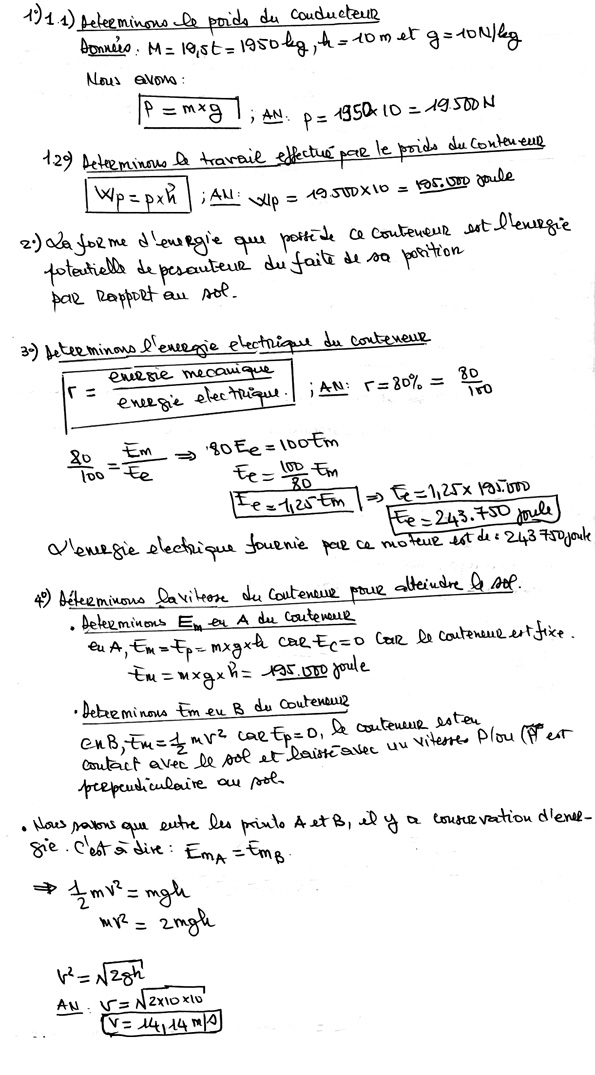 1°) 1.1) Determinons le poids du conducteur
Données: M = 19,5t = 1950kg, h = 10m et g = 10N/kg
Nous avons:
P = m×g ; AN: P = 1950×10 = 19.500N
1.2°) Determinons le travail effectué par le poids du conteneur
Wp = p×h ; AN: Wp = 19.500×10 = 195.000 joule
2°) La forme d'energie que possède ce conteneur est l'energie
potentielle de pesanteur du faite de sa position
par rapport au sol.
3°) Determinons l'energie electrique du conteneur
r = energie mecanique / energie electrique. ; AN: r = 80% = 80/100
80/100 = Em/Ee ⇒ 80Ee = 100Em
Ee = 100/80 Em
Ee = 1,25 Em ⇒ Ee = 1,25 × 195.000
Ee = 243.750 joule
L'energie electrique fournie par ce moteur est de: 243 750 joule
4°) Déterminons la vitesse du conteneur pour atteindre le sol.
• Determinons Em en A du conteneur
en A, Em = Ep = m×g×h car Ec = 0 car le conteneur est fixe.
Em = m×g×h = 195.000 joule
• Determinons Em en B du conteneur
en B, Em = 1/2 mv² car Ep = 0, le conteneur est en
contact avec le sol et laissé avec un vitesse P/ou est
perpendiculaire au sol.
• Nous savons que entre les points A et B, il y a conservation d'ener-
gie. C'est à dire: EmA = EmB.
⇒ 1/2 mv² = mgh
mv² = 2mgh
V² = √2gh
AN: V = √2×10×10
V = 14,14 m/s